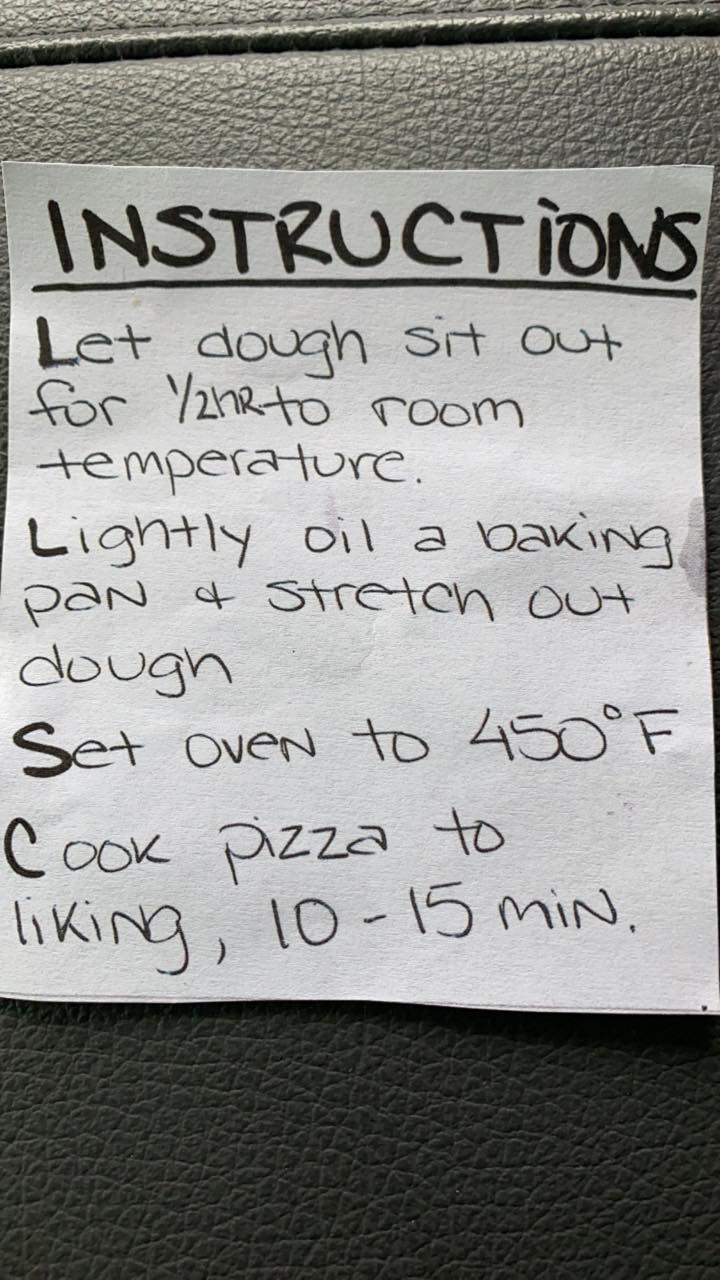 INSTRUCTIONS
Let dough sit out
for 1/2 hR to room
temperature.
Lightly oil a baking
pan & stretch out
dough
Set oven to 450°F
Cook pizza to
liking, 10-15 min.